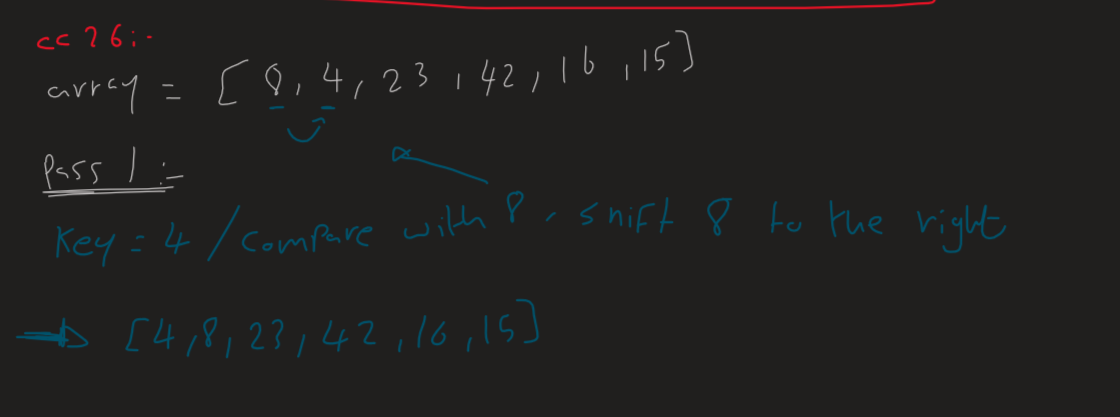 cc 26:-
array = [ 8, 4, 23, 42, 16, 15]
Pass 1:-
Key = 4 / compare with 8, shift 8 to the right
[4, 8, 23, 42, 16, 15]